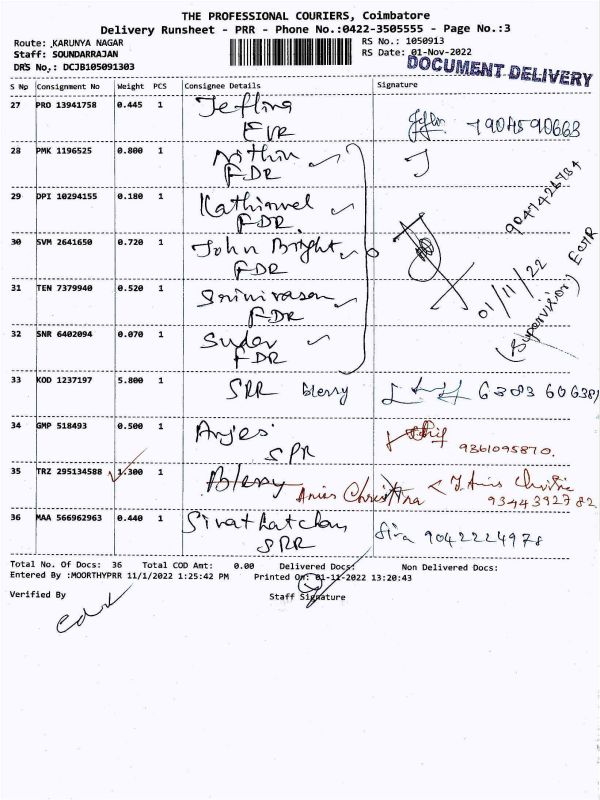 THE PROFESSIONAL COURIERS, Coimbatore
Delivery Runsheet - PRR - Phone No.:0422-3505555 - Page No.:3
Route: KARUNYA NAGAR
RS No.: 1050913
Staff: SOUNDARRAJAN
RS Date: 01-Nov-2022
DRS No.: DCJB105091303
DOCUMENT DELIVERY
S No Consignment No Weight PCS Consignee Details Signature
27 PRO 13941758 0.445 1 Jeflina
EVR
7904590663
28 PMK 1196525 0.800 1 Nithin
FDR
29 DPI 10294155 0.180 1 Kathiravel
FDR
9047426784
30 SVM 2641650 0.720 1 John Bright
FDR
31 TEN 7379940 0.520 1 Srinivasan
FDR
01/11/22
(Supervisor) EVR
32 SNR 6402094 0.070 1 Suder
FDR
33 KOD 1237197 5.800 1 SRR blessy 6383606381
34 GMP 518493 0.500 1 Anjes
SPR
9361095870.
35 TRZ 295134588 1.300 1 Blessy Anies Christina
9344392782
36 MAA 566962963 0.440 1 Sivathatchan
SRR
Siva 9042224978
Total No. Of Docs: 36 Total COD Amt: 0.00 Delivered Docs: Non Delivered Docs:
Entered By :MOORTHYPRR 11/1/2022 1:25:42 PM Printed On: 01-11-2022 13:20:43
Verified By
Staff Signature